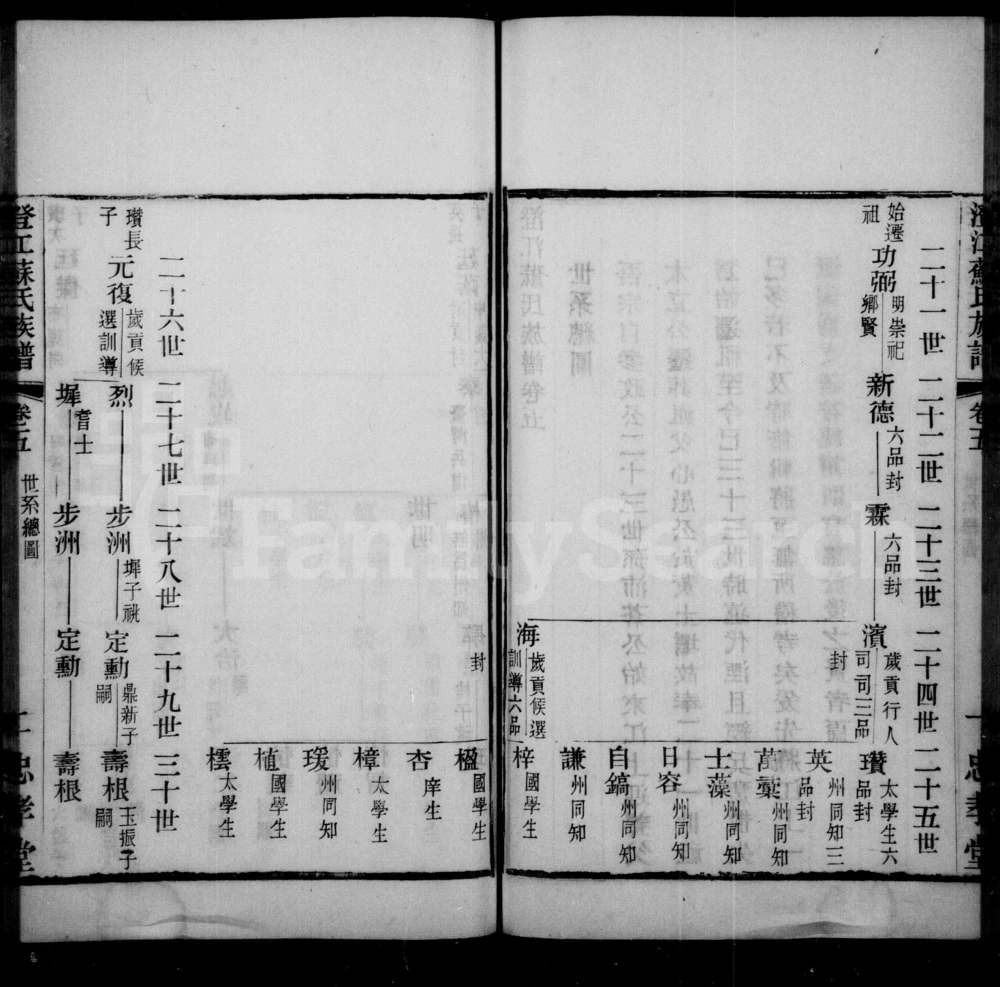 澄江蘇氏族譜
卷五
一
忠孝堂
二十一世
二十二世
二十三世
二十四世
二十五世
始遷祖
功弼
明崇祀鄉賢
新德
六品封
霖
六品封
濱
歲貢行人司司三品封
瓚
太學生六品封
英
州同知三品封
萬
州同知
士藻
州同知
日容
州同知
自鎬
州同知
謙
州同知
海
歲貢候選訓導六品封
梓
國學生
楹
國學生
杏
庠生
樟
太學生
瑗
州同知
植
國學生
橒
太學生
二十六世
二十七世
二十八世
二十九世
三十世
瓚長子
元復
歲貢候選訓導
烈
步洲
墀子祧
定勳
鼎新子嗣
壽根
玉振子嗣
墀
耆士
步洲
定勳
壽根
澄江蘇氏族譜
卷五
世系總圖
二
忠孝堂
FamilySearch